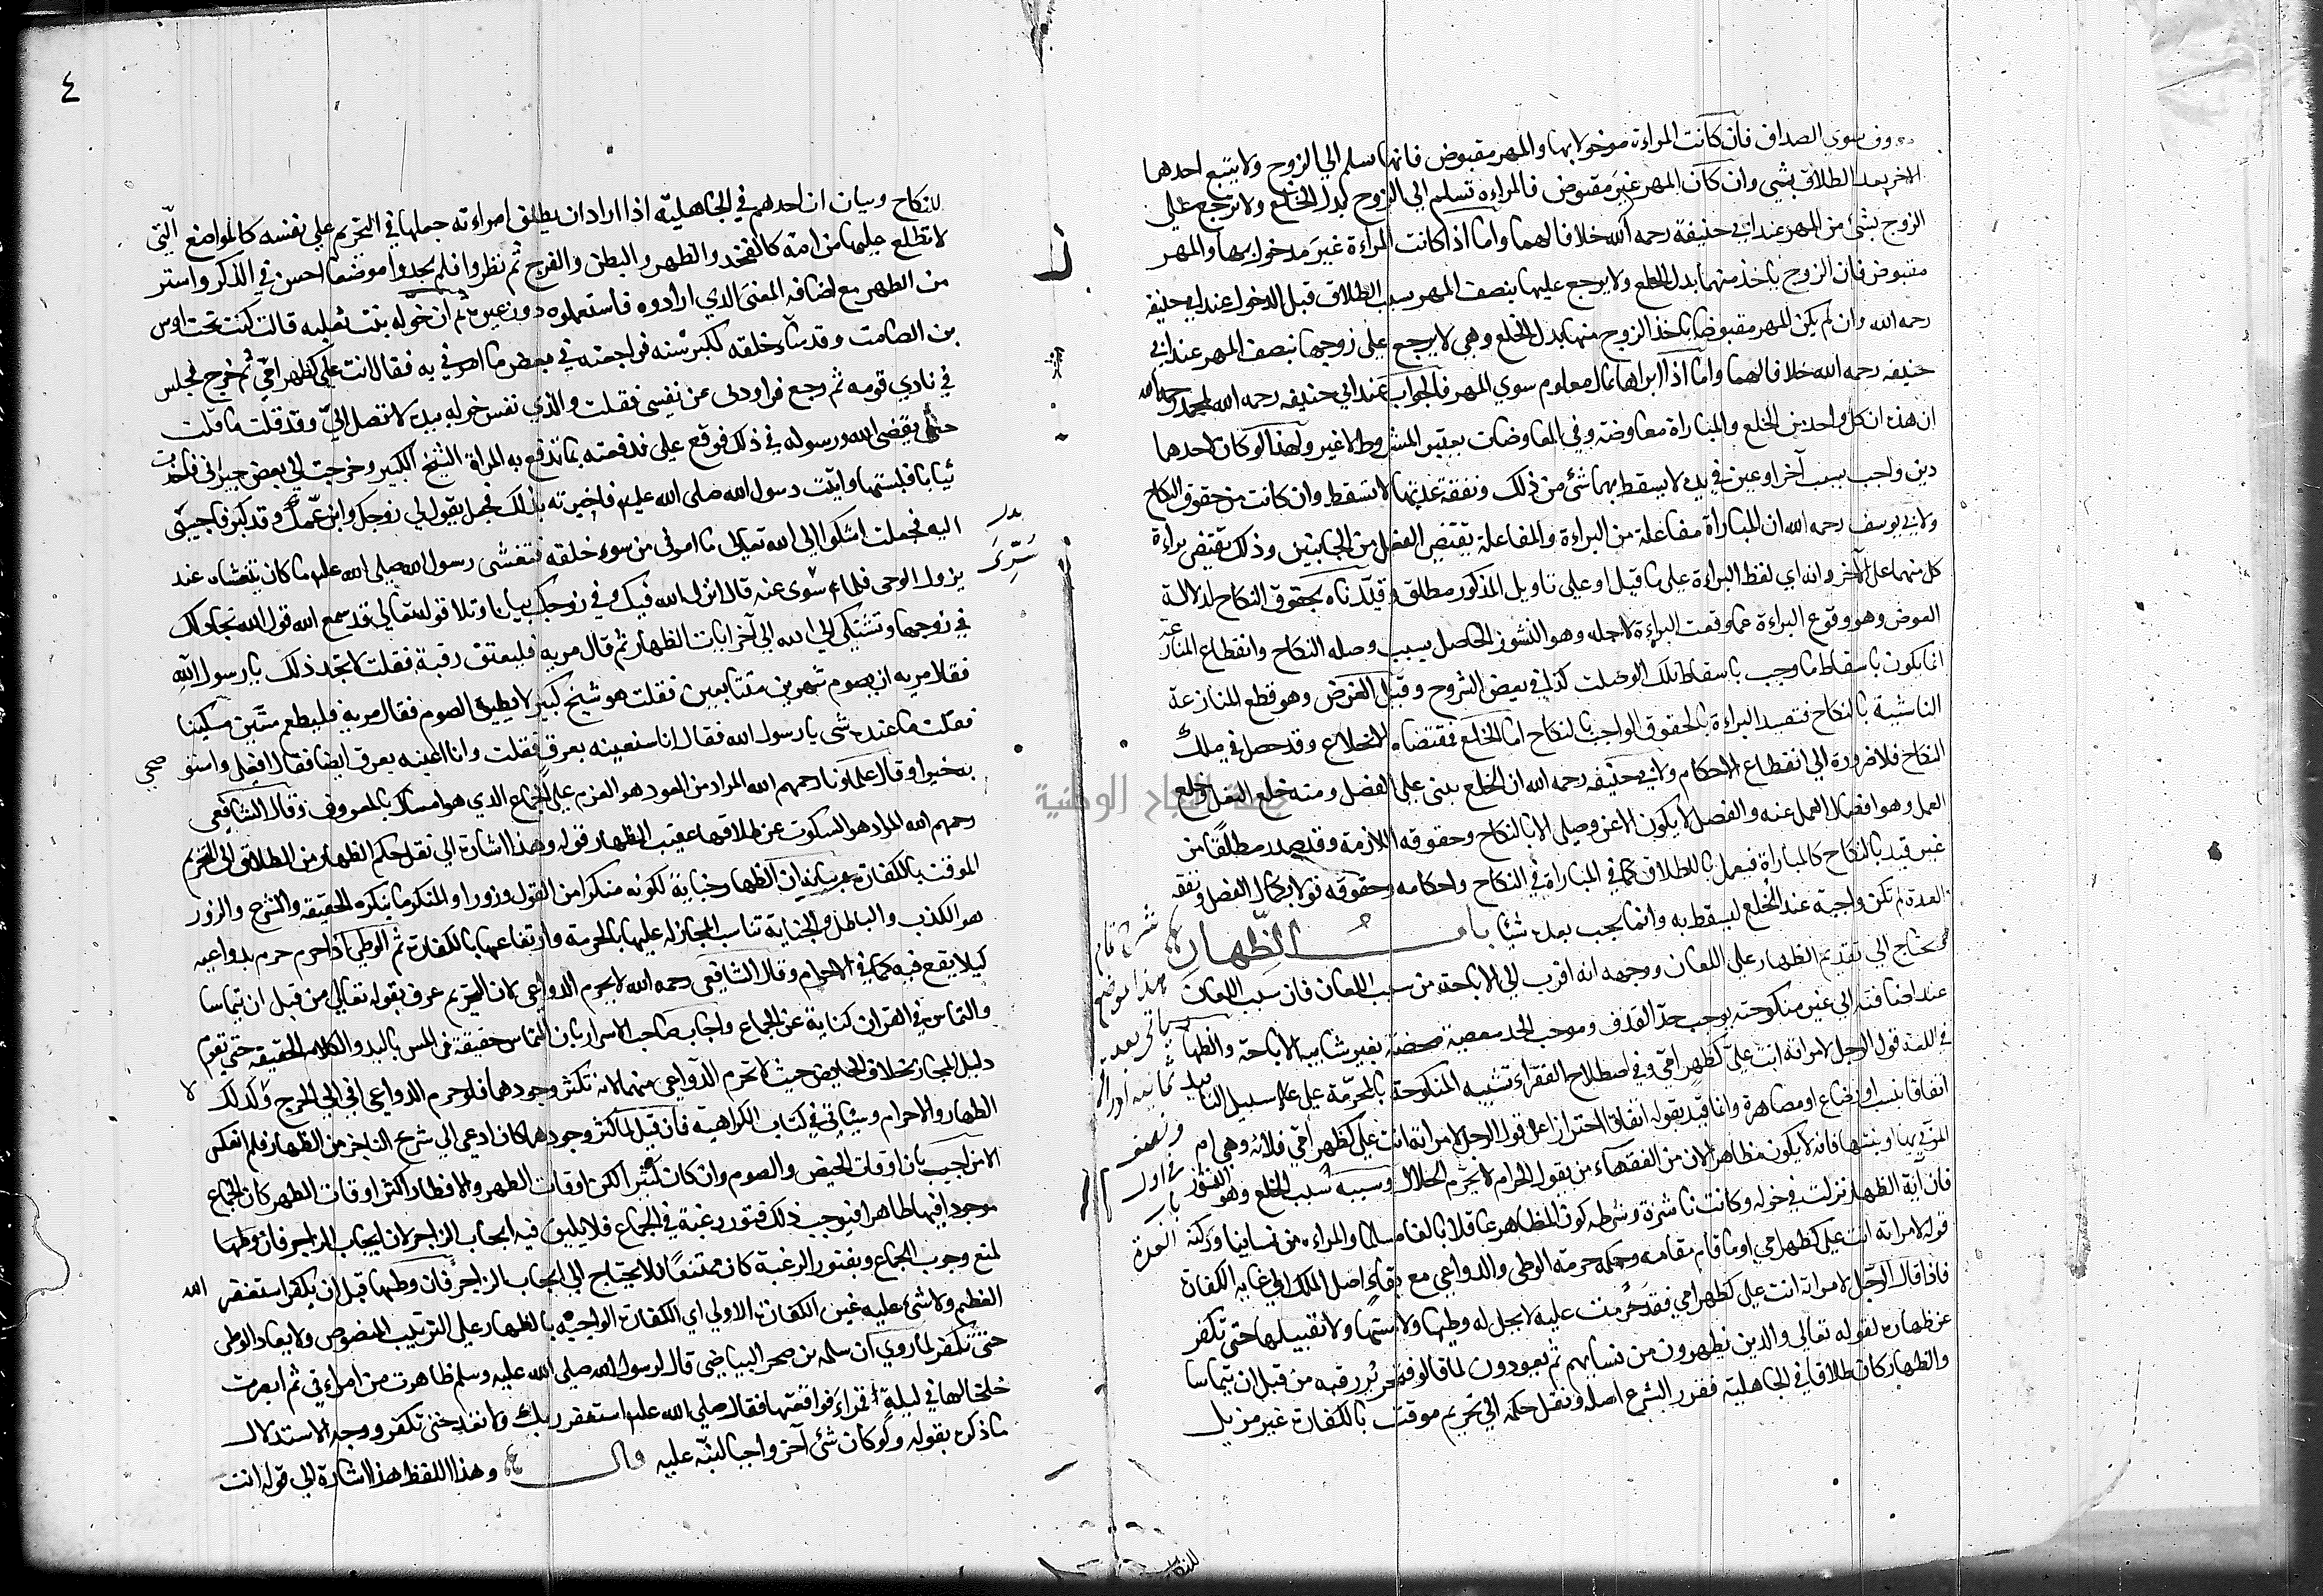 وف سوي الصداق فان كانت المراءة مدخولا بها والمهر مقبوض فانها تسلم الي الزوج ولا يتبع احدهما
الاخر بعد الطلاق بشي وان كان المهر غير مقبوض فالمراءه تسلم الي الزوج بدل الخلع ولا ترجع علي
الزوج بشئ من المهر عند ابي حنيفة رحمه الله خلافا لهما واما اذا كانت المراءة غير مدخول بها والمهر
مقبوض فان الزوج ياخذ منها بدل الخلع ولا يرجع عليها بنصف المهر بسبب الطلاق قبل الدخول عند ابي حنيفه
رحمه الله وان لم يكن المهر مقبوضا ياخذ الزوج منها بدل الخلع وهي لا ترجع علي زوجها بنصف المهر عند ابي
حنيفه رحمه الله خلافا لهما واما اذا ابراها بمال معلوم سوي المهر فالجواب عند ابي حنيفه رحمه الله لمحمد رحمه الله
ان هذه ان كل واحد من الخلع والمباراة معاوضة وفي المعاوضات يعتبر المشروط لا غير ولهذا لو كان لاحدهما
دين واجب بسبب آخر او عين في يده لا يسقط بهما شئ من ذلك ونفقة عدتها لا تسقط وان كانت من حقوق النكاح
ولابي يوسف رحمه الله ان المباراة مفاعلة من البراءة والمفاعلة تقتضي الفعل من الجانبين وذلك يقتضي براءة
كل منهما عن الآخر وانه اي لفظ البراءة علي ما قيل او علي تاويل المذكور مطلق وقيدناه بحقوق النكاح لدلالة
الغرض وهو وقوع البراءة عما وقعت البراءة لاجله وهو النشوز الحاصل بسبب وصله النكاح وانقطاع المنازعة
انما يكون باسقاط ما وجب باسقاط تلك الوصلت كذا في بعض الشروح وقيل الغرض وهو قطع المنازعة
الناشية بالنكاح فتقيد البراءة بالحقوق الواجب بالنكاح اما الخلع فمقتضاه الانخلاع وقد حصل في ملك
النكاح فلا ضرورة الي انقطاع الاحكام ولابي حنيفه رحمه الله ان الخلع يبنى علي الفصل ومنه خلع النعل وخلع
العمل وهو انفصال العمل عنه والفصل لا يكون الا عن وصل الا بالنكاح وحقوقه اللازمة وقد صدر مطلقا من
غير قيد بالنكاح كالمباراة فيعمل بالاطلاق كما في المباراة في النكاح واحكامه وحقوقه تولا بكمال الفصل ونفقه
العدة لم تكن واجبة عند الخلع ليسقط به وانما يجب بعده شيئا باب الظهار
يحتاج الي تقديم الظهار علي اللعان ووجهه انه اقرب الي الاباحة من سبب اللعان فان سبب اللعان
عند اضافته الي غير منكوحته يوجب حد القذف وموجب الحد معصية محضة بغير شايبه الاباحة والظهار
في اللغة قول الرجل لامراته انت علي كظهر امي وفي اصطلاح الفقهاء تشبيه المنكوحة بالمحرمة علي سبيل التابيد
اتفاقا بنسب او رضاع او مصاهرة وانما قيد بقوله اتفاقا احترازا عن قول الرجل لامراته انت علي كظهر امي فلانة وهي ام
المزني بها او بنتها فانه لا يكون مظاهرا لان من الفقهاء من يقول الحرام لا يحرم الحلال وسببه سبب الخلع وهو النشوز
فان آية الظهار نزلت في خوله وكانت ناشزة وشرطه كون المظاهر عاقلا بالغا مسلما والمراءة من نسائنا وركنه
قوله لامراته انت علي كظهر امي او ما قام مقامه وحكمه حرمة الوطي والدواعي مع بقاء اصل الملك الي غاية الكفارة
فاذا قال الرجل لامراته انت علي كظهر امي فقد حرمت عليه لا يحل له وطيها ولا مسها ولا تقبيلها حتي تكفر
عن ظهاره لقوله تعالي والذين يظهرون من نسايهم ثم يعودون لما قالوا فتحرير رقبه من قبل ان يتماسا
والظهار كان طلاقا في الجاهلية فقرر الشرع اصله ونقل حكمه الي تحريم موقت بالكفارة غير مزيل
للنكاح
٤
للنكاح وبيان ان احدهم في الجاهلية اذا اراد ان يطلق امراءته جعلها في التحريم علي نفسه كالمواضع التي
لا تطلع عليها من امه كالفخذ والظهر والبطن والفرج ثم نظروا فلم يجدوا موضعا احسن في الذكر واستر
من الظهر مع اضافه المعنى الذي ارادوه فاستعملوه دون غيره ثم ان خوله بنت ثعلبه قالت كنت تحت اوس
بن الصامت وقد ساء خلقه لكبر سنه فراجعته في بعض ما امرني به فقال انت علي كظهر امي ثم خرج فجلس
في نادي قومه ثم رجع فراودني عن نفسي فقلت والذي نفس خوله بيده لا تصل الي وقد قلت ما قلت
حتي يقضي الله ورسوله في ذلك فوقع علي فدفعته بما تدفع به المراة الشيخ الكبير وخرجت الي بعض جيراني فاخذت
ثيابا فلبستها واتيت رسول الله صلى الله عليه فاخبرته بذلك فجعل يقول لي زوجك وابن عمك وقد كبر فاحسني
اليه فجعلت اشكوا الي الله تعالى ما اري من سوء خلقه فتغشى رسول الله صلى الله عليه ما كان يتغشاه عند
نزول الوحي فلما سري عنه قال انزل الله فيك وفي زوجك بيانا وتلا قوله تعالى قد سمع الله قول التي تجادلك
في زوجها وتشتكي الي الله الي آخر ايات الظهار ثم قال مريه فليعتق رقبة فقلت لا تجد ذلك يا رسول الله
فقال مريه ان يصوم شهرين متتابعين فقلت هو شيخ كبير لا يطيق الصوم فقال مريه فليطعم ستين مسكينا
فقلت ما عنده شي يا رسول الله فقال انا سنعينه بعرق فقلت وانا اعينه بعرق ايضا فقال افعلي واستوصي
به خيرا وقال علماونا رحمهم الله المراد من العود هو العزم علي الجماع الذي هو امساك بالمعروف وقال الشافعي
رحمهم الله المراد هو السكوت عن طلاقها عقيب الظهار قوله وهذا اشارة الي نقل حكم الظهار من الطلاق الي التحريم
الموقت بالكفارة وبيانه ان الظهار جناية لكونه منكرا من القول وزورا والمنكر ما ينكره الحقيقه والشرع والزور
هو الكذب والباطل والجناية تناسب المجازاة عليها بالحرمة وارتفاعها بالكفارة ثم الوطي اذا حرم حرم بدواعيه
كيلا يقع فيه كما في الاحرام وقال الشافعي رحمه الله لا يحرم الدواعي لان التحريم عرف بقوله تعالي من قبل ان يتماسا
والتماس في القران كناية عن الجماع واجاب صاحب الاسرار بان التماس حقيقة في المس باليد والكلام للحقيقة حتي يقوم
دليل المجاز بخلاف الحايض حيث لا تحرم الدواعي منهما لانه تكثر وجودهما فلو حرم الدواعي افضي الي الحرج وكذلك لا
الظهار والاحرام وسياتي في كتاب الكراهية فان قيل لما كثر وجودهما كان ادعي الي شرع الزاجر من الظهار فلم انعكس
الامر اجيب بان اوقات الحيض والصوم وان كان كثيرا لكن اوقات الطهر والافطار اكثر اوقات الطهر كان الجماع
موجودا فيها ظاهرا فيوجب ذلك فتور رغبة في الجماع فلا يليق فيه ايجاب الزاجر لان ايجاب الزاجر فان وطيها
لمنع وجوب الجماع وبفتور الرغبة كان ممتنعا فلا يحتاج الي ايجاب الزاجر فان وطيها قبل ان يكفر استغفر الله
العظيم ولا شئ عليه غير الكفارة الاولي اي الكفارة الواجبه بالظهار علي الترتيب المنصوص ولا يعاد الوطي
حتي تكفر لما روي ان سلمه بن صخر البياضي قال لرسول الله صلى الله عليه وسلم ظاهرت من امراتي ثم ابصرت
خلخالها في ليلة قمراء فواقعتها فقال صلي الله عليه استغفر ربك ولا تعد حتى تكفر ووجه الاستدلال
ما ذكره بقوله ولو كان شئ آخر واجبا لنبه عليه قال وهذا اللفظ هذا اشارة الي قوله انت